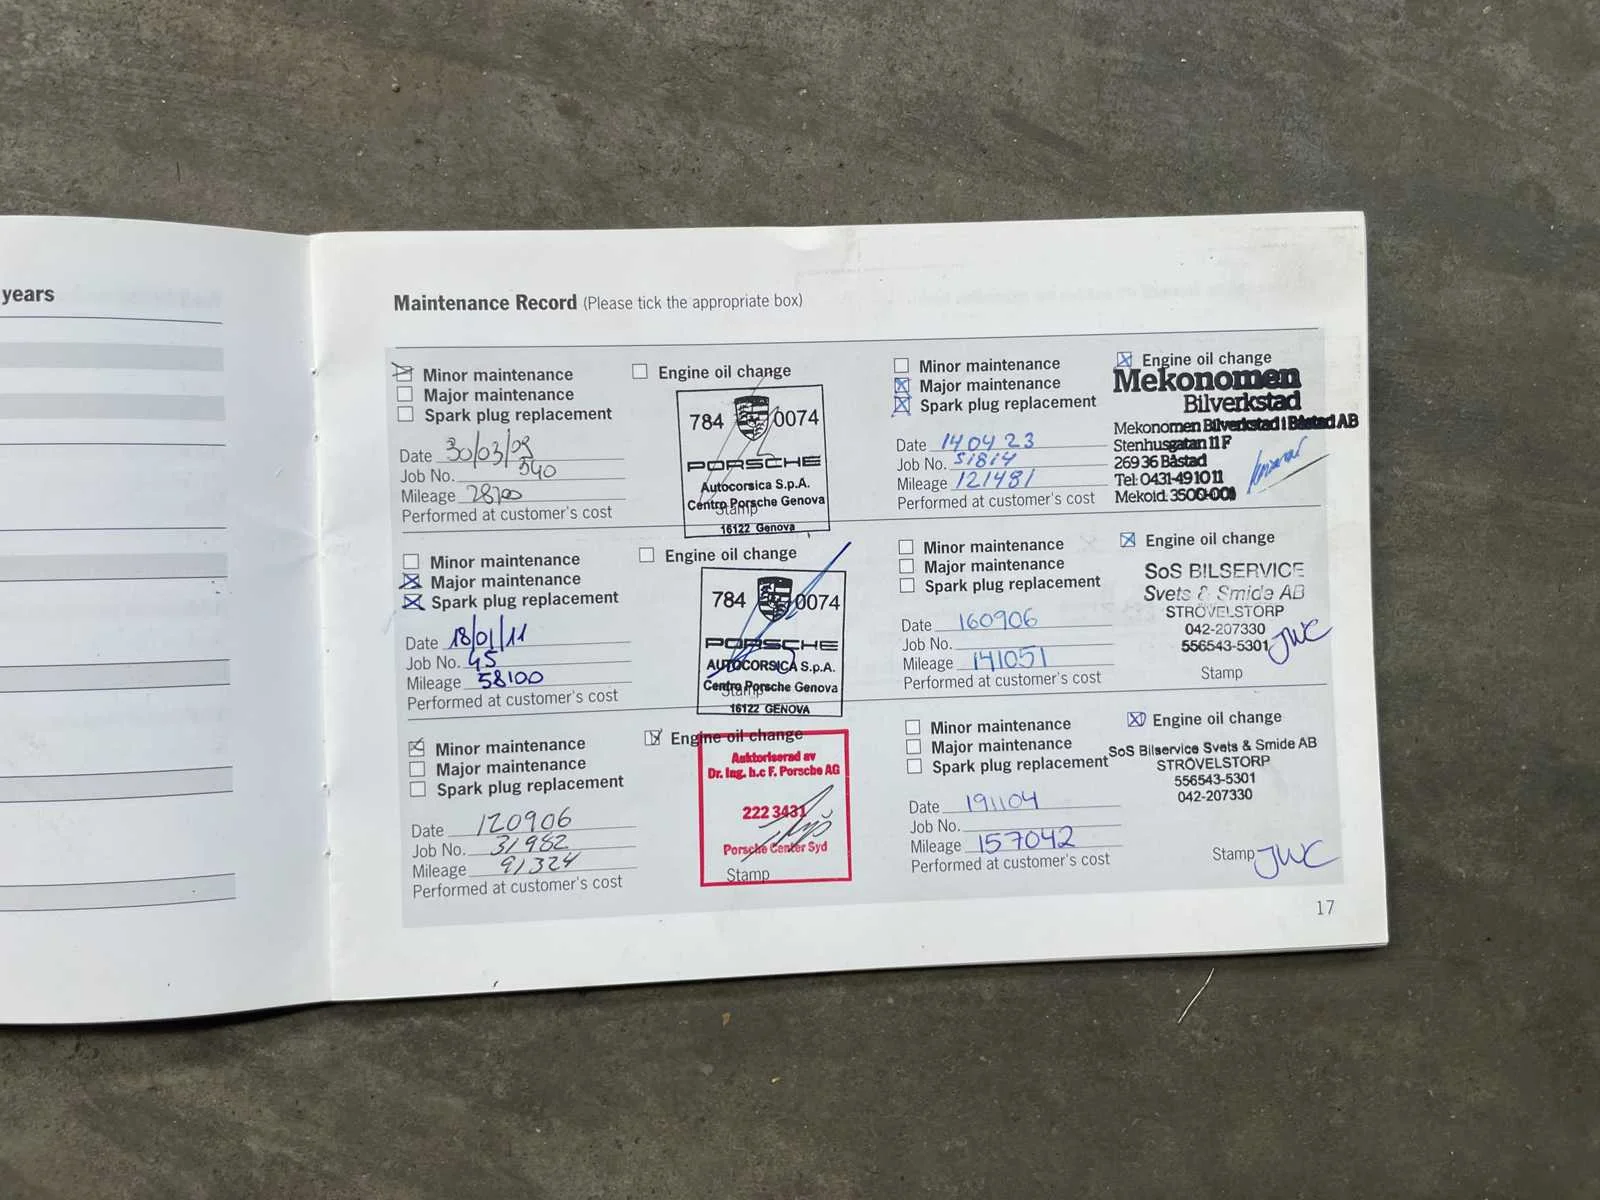 years
Maintenance Record (Please tick the appropriate box)
Minor maintenance
Major maintenance
Spark plug replacement
Engine oil change
Date 30/03/09
Job No. 540
Mileage 28700
Performed at customer's cost
784 0074
PORSCHE
Autocorsica S.p.A.
Centro Porsche Genova
Stamp
16122 Genova
Minor maintenance
Major maintenance
Spark plug replacement
Engine oil change
Date 18/01/11
Job No. 45
Mileage 58100
Performed at customer's cost
784 0074
PORSCHE
AUTOCORSICA S.p.A.
Centro Porsche Genova
Stamp
16122 GENOVA
Minor maintenance
Major maintenance
Spark plug replacement
Engine oil change
Date 120906
Job No. 31982
Mileage 91324
Performed at customer's cost
Auktoriserad av
Dr. Ing. h.c F. Porsche AG
222 3431
Porsche Center Syd
Stamp
Minor maintenance
Major maintenance
Spark plug replacement
Engine oil change
Date 140423
Job No. 51814
Mileage 121481
Performed at customer's cost
Mekonomen
Bilverkstad
Mekonomen Bilverkstad i Båstad AB
Stenhusgatan 11 F
269 36 Båstad
Tel: 0431-491011
Mekoid: 3500-001
Minor maintenance
Major maintenance
Spark plug replacement
Engine oil change
Date 160906
Job No.
Mileage 141051
Performed at customer's cost
SoS BILSERVICE
Svets & Smide AB
STRÖVELSTORP
042-207330
556543-5301
JWC
Stamp
Minor maintenance
Major maintenance
Spark plug replacement
Engine oil change
Date 191104
Job No.
Mileage 157042
Performed at customer's cost
SoS Bilservice Svets & Smide AB
STRÖVELSTORP
556543-5301
042-207330
Stamp JWC
17